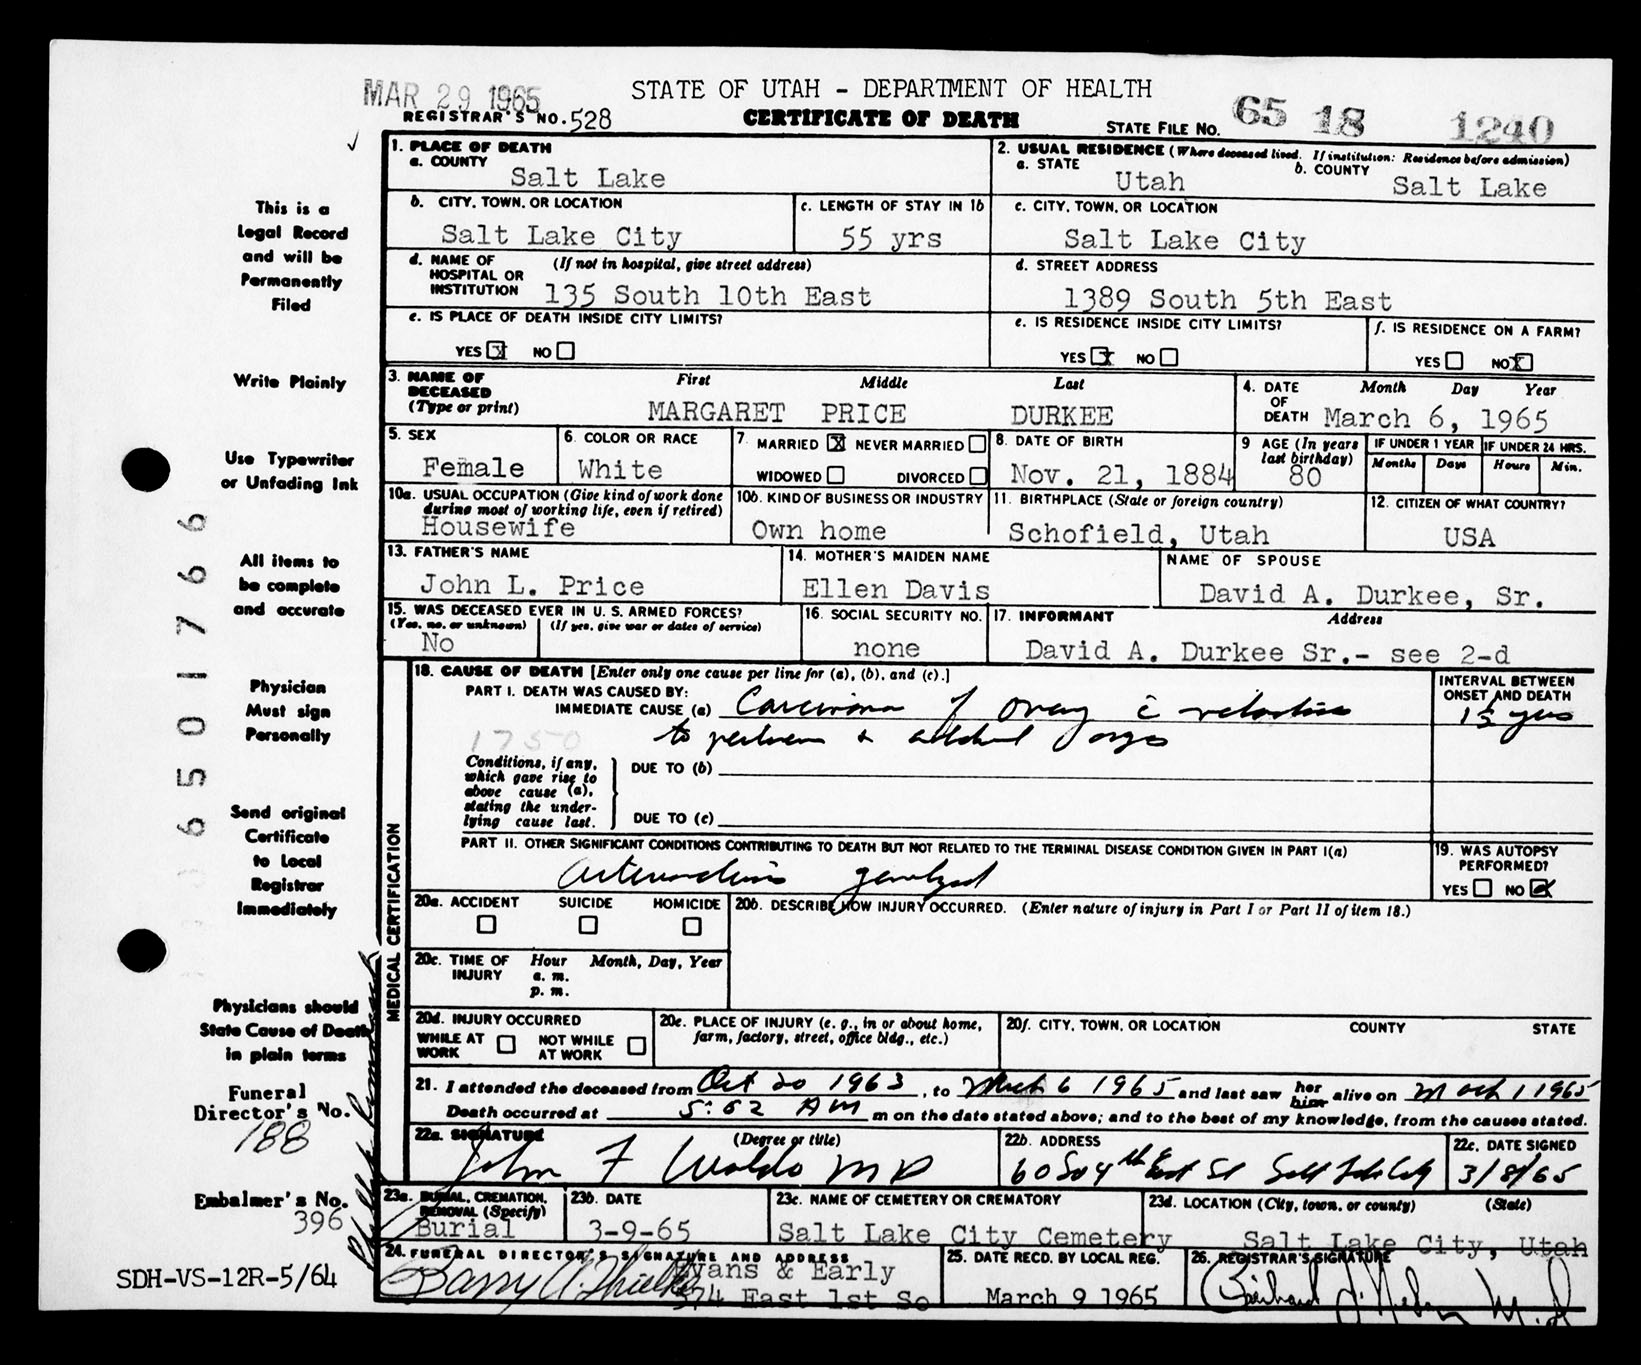 MAR 29 1965
STATE OF UTAH - DEPARTMENT OF HEALTH
REGISTRAR'S NO. 528
CERTIFICATE OF DEATH
STATE FILE NO. 65 18 1240
1. PLACE OF DEATH
a. COUNTY
Salt Lake
2. USUAL RESIDENCE (Where deceased lived. If institution: Residence before admission)
a. STATE
Utah
b. COUNTY
Salt Lake
b. CITY, TOWN, OR LOCATION
Salt Lake City
c. LENGTH OF STAY IN 1b
55 yrs
c. CITY, TOWN, OR LOCATION
Salt Lake City
d. NAME OF HOSPITAL OR INSTITUTION
(If not in hospital, give street address)
135 South 10th East
d. STREET ADDRESS
1389 South 5th East
e. IS PLACE OF DEATH INSIDE CITY LIMITS?
YES X NO
e. IS RESIDENCE INSIDE CITY LIMITS?
YES X NO
f. IS RESIDENCE ON A FARM?
YES NO X
3. NAME OF DECEASED (Type or print)
First Middle Last
MARGARET PRICE DURKEE
4. DATE OF DEATH
Month Day Year
March 6, 1965
5. SEX
Female
6. COLOR OR RACE
White
7. MARRIED X NEVER MARRIED
WIDOWED DIVORCED
8. DATE OF BIRTH
Nov. 21, 1884
9 AGE (In years last birthday)
80
IF UNDER 1 YEAR
Months Days
IF UNDER 24 HRS.
Hours Min.
10a. USUAL OCCUPATION (Give kind of work done during most of working life, even if retired)
Housewife
10b. KIND OF BUSINESS OR INDUSTRY
Own home
11. BIRTHPLACE (State or foreign country)
Schofield, Utah
12. CITIZEN OF WHAT COUNTRY?
USA
13. FATHER'S NAME
John L. Price
14. MOTHER'S MAIDEN NAME
Ellen Davis
NAME OF SPOUSE
David A. Durkee, Sr.
15. WAS DECEASED EVER IN U. S. ARMED FORCES?
(Yes, no, or unknown) (If yes, give war or dates of service)
No
16. SOCIAL SECURITY NO.
none
17. INFORMANT Address
David A. Durkee Sr.- see 2-d
MEDICAL CERTIFICATION
18. CAUSE OF DEATH [Enter only one cause per line for (a), (b), and (c).]
PART I. DEATH WAS CAUSED BY:
IMMEDIATE CAUSE (a) Carcinoma of ovary
to
1750
INTERVAL BETWEEN ONSET AND DEATH
yrs
Conditions, if any, which gave rise to above cause (a), stating the underlying cause last.
DUE TO (b)
DUE TO (c)
PART II. OTHER SIGNIFICANT CONDITIONS CONTRIBUTING TO DEATH BUT NOT RELATED TO THE TERMINAL DISEASE CONDITION GIVEN IN PART I(a)
19. WAS AUTOPSY PERFORMED?
YES NO X
20a. ACCIDENT SUICIDE HOMICIDE
20b. DESCRIBE HOW INJURY OCCURRED. (Enter nature of injury in Part I or Part II of item 18.)
20c. TIME OF INJURY
Hour Month, Day, Year
a. m.
p. m.
20d. INJURY OCCURRED
WHILE AT WORK NOT WHILE AT WORK
20e. PLACE OF INJURY (e. g., in or about home, farm, factory, street, office bldg., etc.)
20f. CITY, TOWN, OR LOCATION COUNTY STATE
21. I attended the deceased from Oct 20 1963, to March 6 1965 and last saw her him alive on March 1 1965
Death occurred at 5:02 AM m on the date stated above; and to the best of my knowledge, from the causes stated.
22a. SIGNATURE (Degree or title)
John F Waldo MD
22b. ADDRESS
60 So 4th East St Salt Lake City
22c. DATE SIGNED
3/8/65
23a. BURIAL, CREMATION, REMOVAL (Specify)
Burial
23b. DATE
3-9-65
23c. NAME OF CEMETERY OR CREMATORY
Salt Lake City Cemetery
23d. LOCATION (City, town, or county) (State)
Salt Lake City, Utah
24. FUNERAL DIRECTOR'S SIGNATURE AND ADDRESS
Evans & Early
574 East 1st So
25. DATE RECD. BY LOCAL REG.
March 9 1965
26. REGISTRAR'S SIGNATURE
This is a
Legal Record
and will be
Permanently
Filed
Write Plainly
Use Typewriter
or Unfading Ink
All items to
be complete
and accurate
Physician
Must sign
Personally
Send original
Certificate
to Local
Registrar
Immediately
Physicians should
State Cause of Death
in plain terms
Funeral
Director's No.
188
Embalmer's No.
396
SDH-VS-12R-5/64
6501766